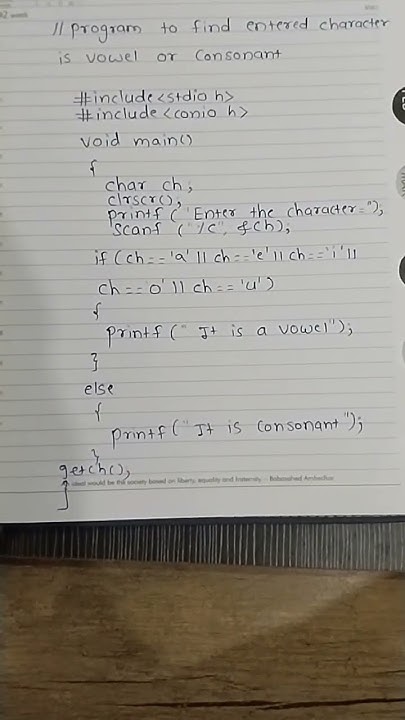 // program to find entered character
is vowel or Consonant
#include<stdio h>
#include <conio h>
void main()
{
char ch;
clrscr();
printf ("Enter the character=");
scanf ("%c", &ch);
if (ch=='a' || ch=='e' || ch=='i' ||
ch=='o' || ch=='u')
{
printf (" It is a vowel");
}
else
{
printf (" It is Consonant");
}
getch();
}
ideal would be the society based on liberty, equality and fraternity. - Babasaheb Ambedkar